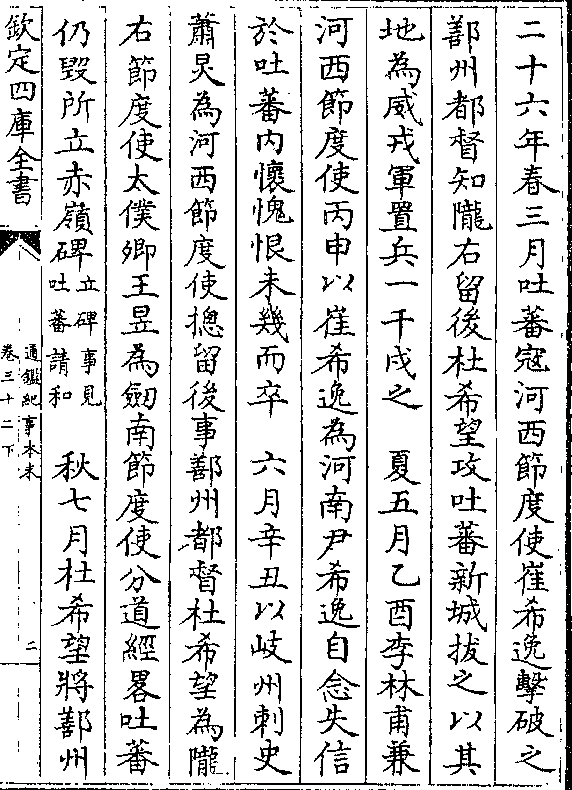 二十六年春三月吐蕃寇河西節度使崔希逸擊破之
鄯州都督知隴右留後杜希望攻吐蕃新城拔之以其
地為威戎軍置兵一千戍之　夏五月乙酉李林甫兼
河西節度使丙申以崔希逸為河南尹希逸自念失信
於吐蕃内懷愧恨未幾而卒　六月辛丑以岐州刺史
蕭炅為河西節度使摠留後事鄯州都督杜希望為隴
右節度使太僕卿王昱為劒南節度使分道經畧吐蕃
仍毀所立赤嶺碑立碑事見吐蕃請和　秋七月杜希望將鄯州
欽定四庫全書
通鑑紀事本末
卷三十二下
二